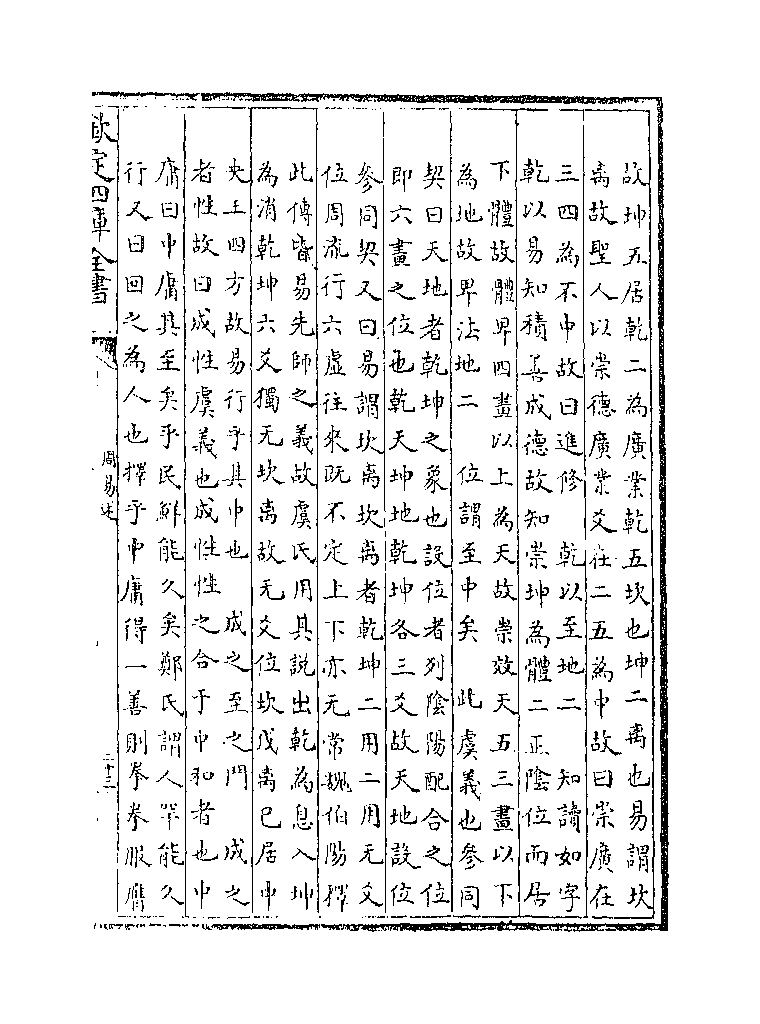 故坤五居乾二為廣業乾五坎也坤二离也易謂坎
离故聖人以崇德廣業爻在二五為中故曰崇廣在
三四為不中故曰進修 乾以至地二 知讀如字
乾以易知積善成德故知崇坤為體二正陰位而居
下體故體卑四畫以上為天故崇效天五三畫以下
為地故卑法地二 位謂至中矣 此虞義也參同
契曰天地者乾坤之象也設位者列陰陽配合之位
即六畫之位也乾天坤地乾坤各三爻故天地設位
參同契又曰易謂坎离坎离者乾坤二用二用无爻
位周流行六虛往來既不定上下亦无常魏伯陽擇
此傳皆易先師之義故虞氏用其説出乾為息入坤
為消乾坤六爻獨无坎离故无爻位坎戊离己居中
央王四方故易行乎其中也 成之至之門 成之
者性故曰成性虞義也成性性之合于中和者也中
庸曰中庸其至矣乎民鮮能久矣鄭氏謂人罕能久
行又曰回之為人也擇乎中庸得一善則拳拳服膺
欽定四庫全書
周易述
二十三